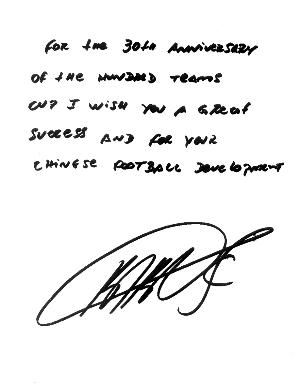 FOR THE 30TH ANNIVERSARY
OF THE HUNDRED TEAMS
CUP I WISH YOU A GREAT
SUCCESS AND FOR YOUR
CHINESE FOOTBALL DEVELOPMENT